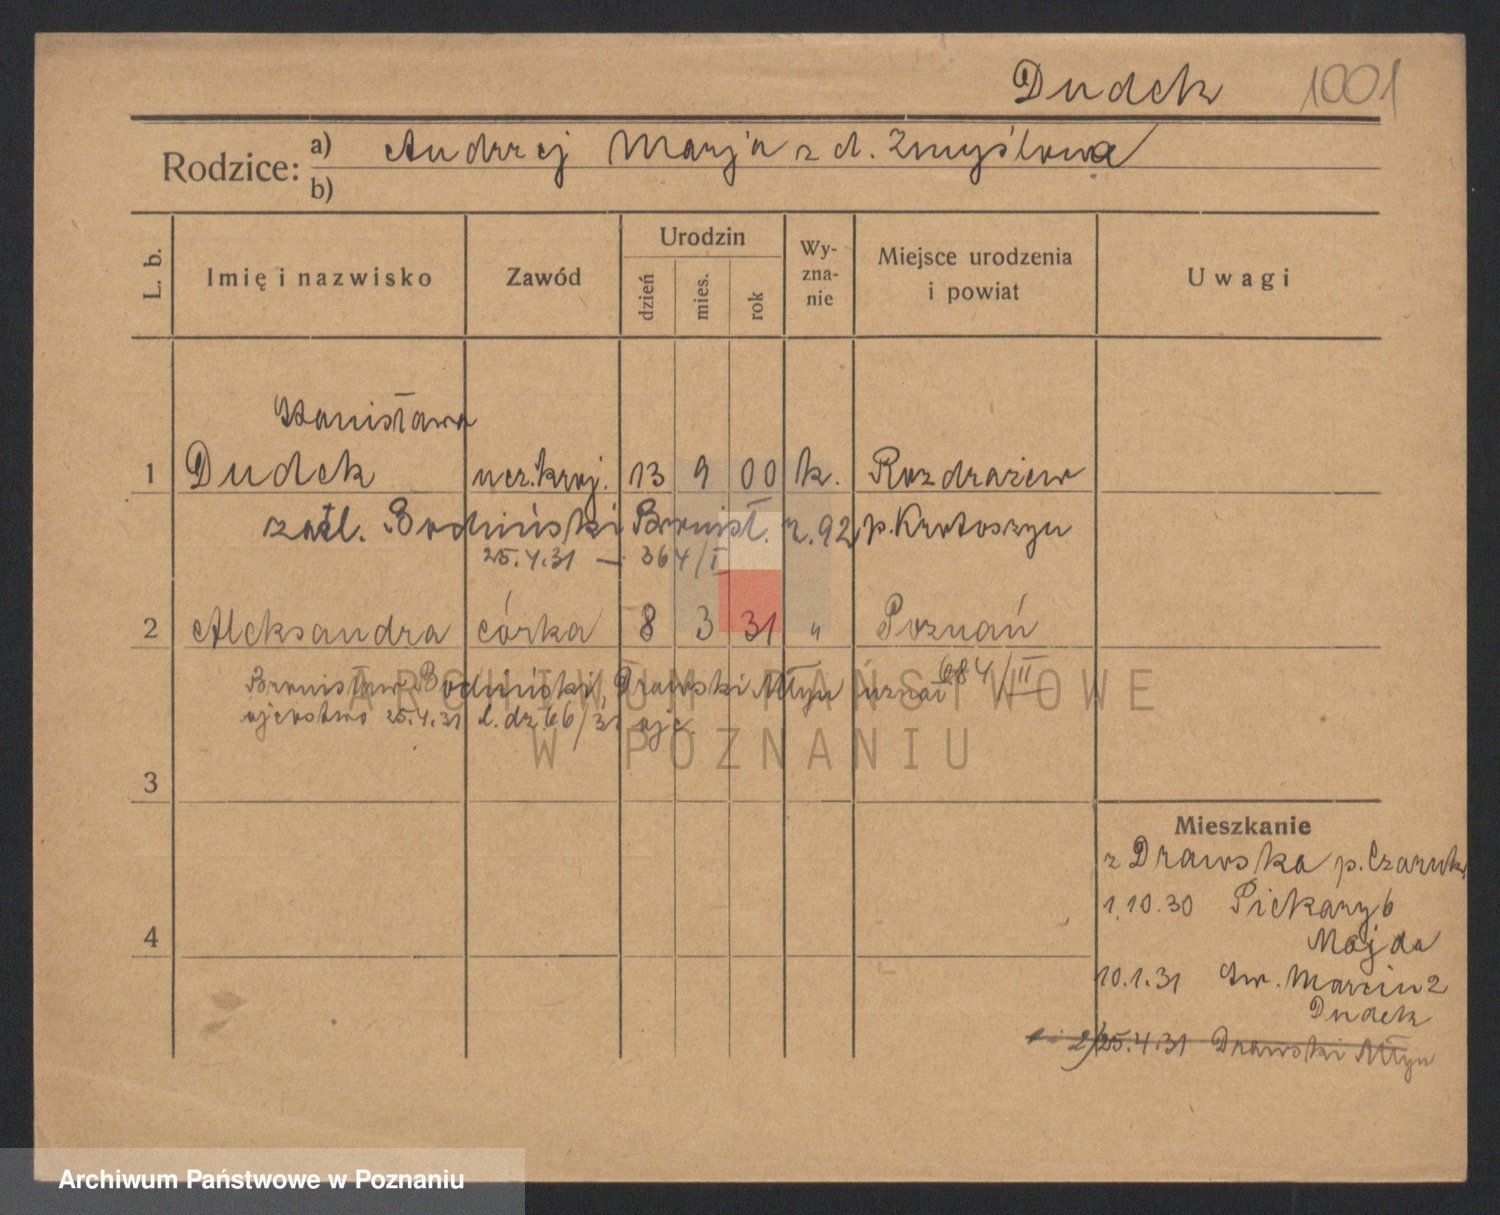 Dudek 1001
Rodzice: a) Andrzej Marja z d. Zmyślona
b)
L. b. Imię i nazwisko Zawód Urodzin dzień mies. rok Wy-zna-nie Miejsce urodzenia i powiat Uwagi
Stanisława
1 Dudek ucz. kraj. 13 9 00 k. Rozdrażew
zaśl. Bodziński Bronisł. r. 92 p. Krotoszyn
25.4.31 — 364/I
2 Aleksandra córka 8 3 31 " Poznań
684/II
Bronisław Bodziński, Drawski Młyn uznał
ojcostwo 25.4.31 l. dz. 66/31 ojc.
3
Mieszkanie
z Drawska p. Czarnk.
1.10.30 Piekary 6
Majda
4
10.1.31 Św. Marcin 2
Dudek
1 i 2/25.4.31 Drawski Młyn
ARCHIWUM PAŃSTWOWE
W POZNANIU
Archiwum Państwowe w Poznaniu